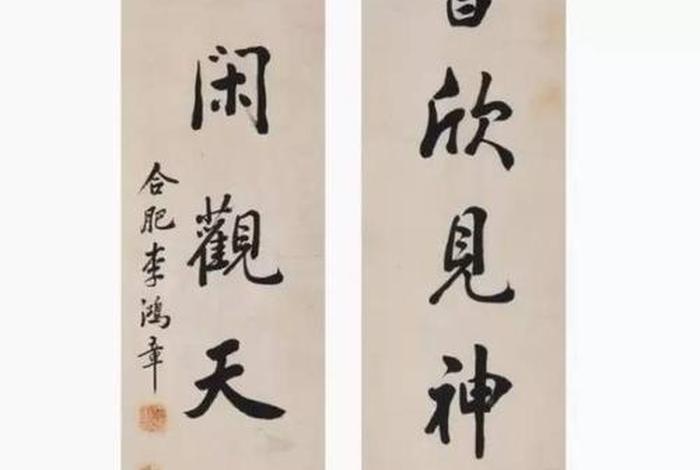 欣見神
閑觀天
合肥李鴻章